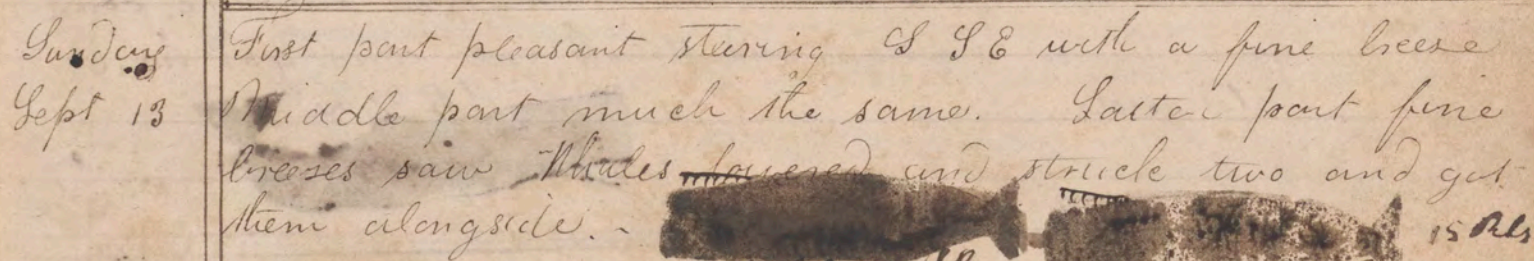 Sunday
Sept 13
First part pleasant steering S S E with a fine breeze
Middle part much the same. Latter part fine
breezes saw Whales lowered and struck two and got
them alongside. -
15 Bls